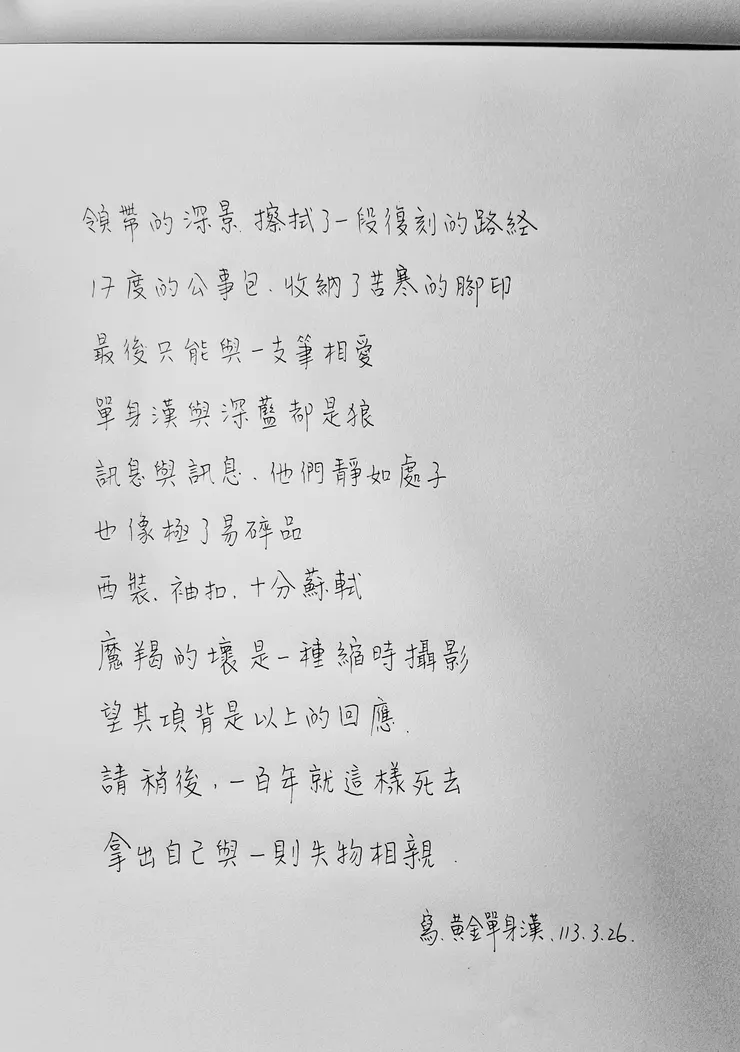 領帶的深景、擦拭了一段復刻的路経
17度的公事包、收納了苦寒的腳印
最後只能與一支筆相愛
單身漢與深藍都是狼
訊息與訊息、他們靜如處子
也像極了易碎品
西裝、袖扣、十分蘇軾
魔羯的壞是一種縮時攝影
望其項背是以上的回應、
請稍後，一百年就這樣死去
拿出自己與一則失物相親、
寫、黃金單身漢、113.3.26.